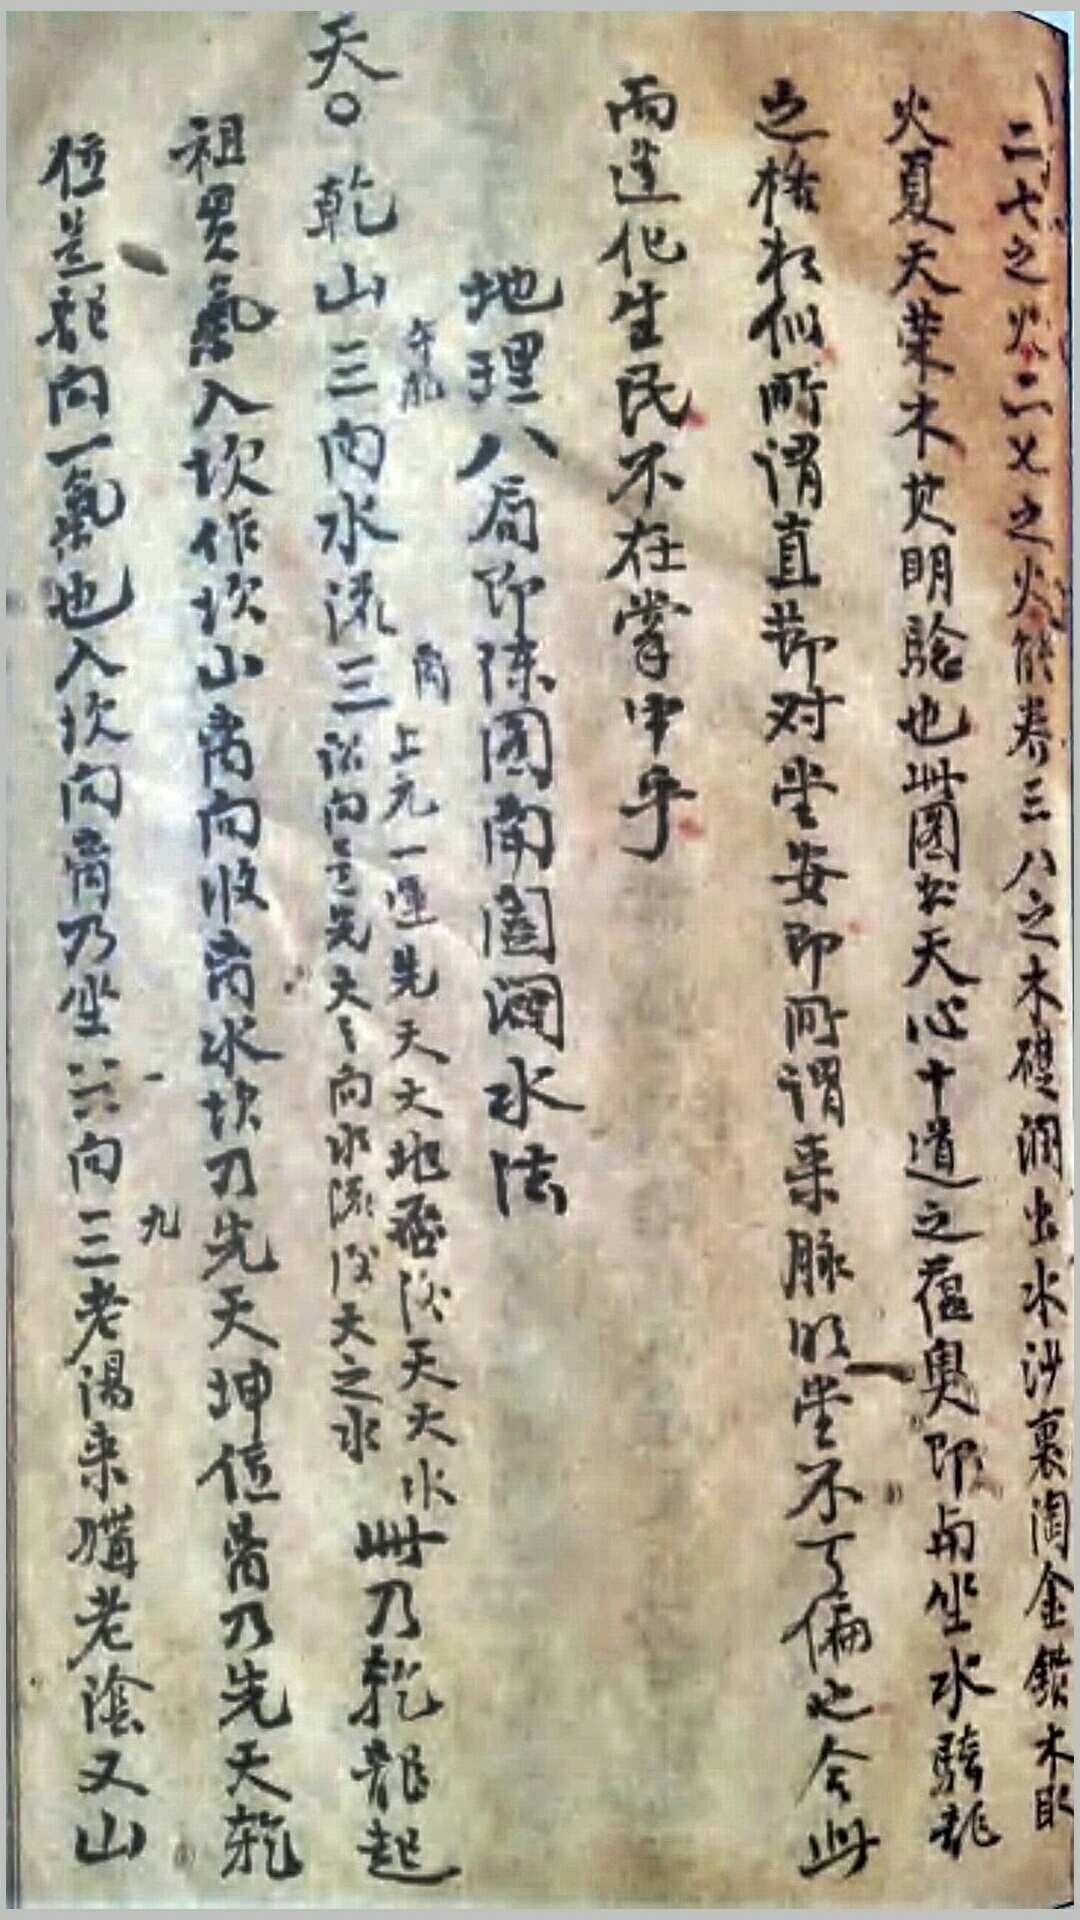 二七之火二七之火能養三八之木礎潤出水沙裏淘金鑽木取
火夏天榮木焚明驗也此圖出天心十道之蘊奧即向坐水騎龍
之格相似所謂直節对堂安即所謂来脉明堂不可偏也合此
而造化生民不在掌中乎
地理八局即陳園南園澗水法
天○乾山三向水流三
午龍
离
上元一運先天大地否後天天水
訟向是先天天向水流後天之水
此乃乾龍起
祖畧氣入坎作坎山离向收离水坎乃先天坤位离乃先天乾
位是龍向一氣也入坎向离乃坐六向三老陽来媾老陰又山
一
九